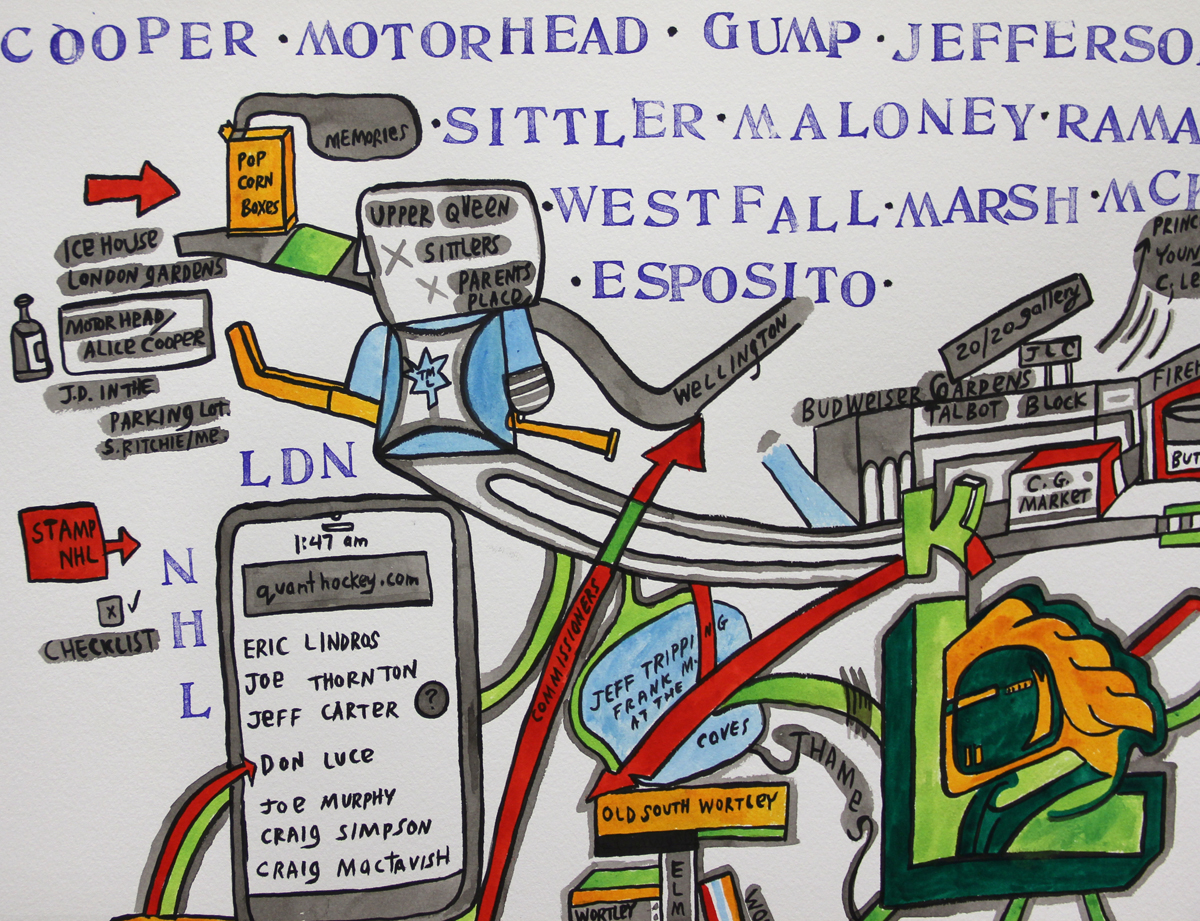 COOPER • MOTORHEAD • GUMP • JEFFERSO
• SITTLER • MALONEY • RAMA
• WESTFALL • MARSH • MC
• ESPOSITO •
MEMORIES
POP
CORN
BOXES
UPPER QUEEN
X SITTLERS
X PARENTS
PLACE
ICE HOUSE
LONDON GARDENS
MOTORHEAD/
ALICE COOPER
J.D. IN THE
PARKING LOT.
S. RITCHIE/ME.
TM
L
WELLINGTON
PRINC
YOUN
C, LE
20/20 gallery
JLC
BUDWEISER GARDENS
TALBOT BLOCK
FIREH
BUT
C.G.
MARKET
K
LDN
NHL
STAMP
NHL
X
CHECKLIST
1:47 am
quanthockey.com
ERIC LINDROS
JOE THORNTON
JEFF CARTER ?
DON LUCE
JOE MURPHY
CRAIG SIMPSON
CRAIG MACTAVISH
COMMISSIONERS
JEFF TRIPPING
FRANK M.
AT THE
COVES
THAMES
OLD SOUTH WORTLEY
ELM
WORTLEY
WO